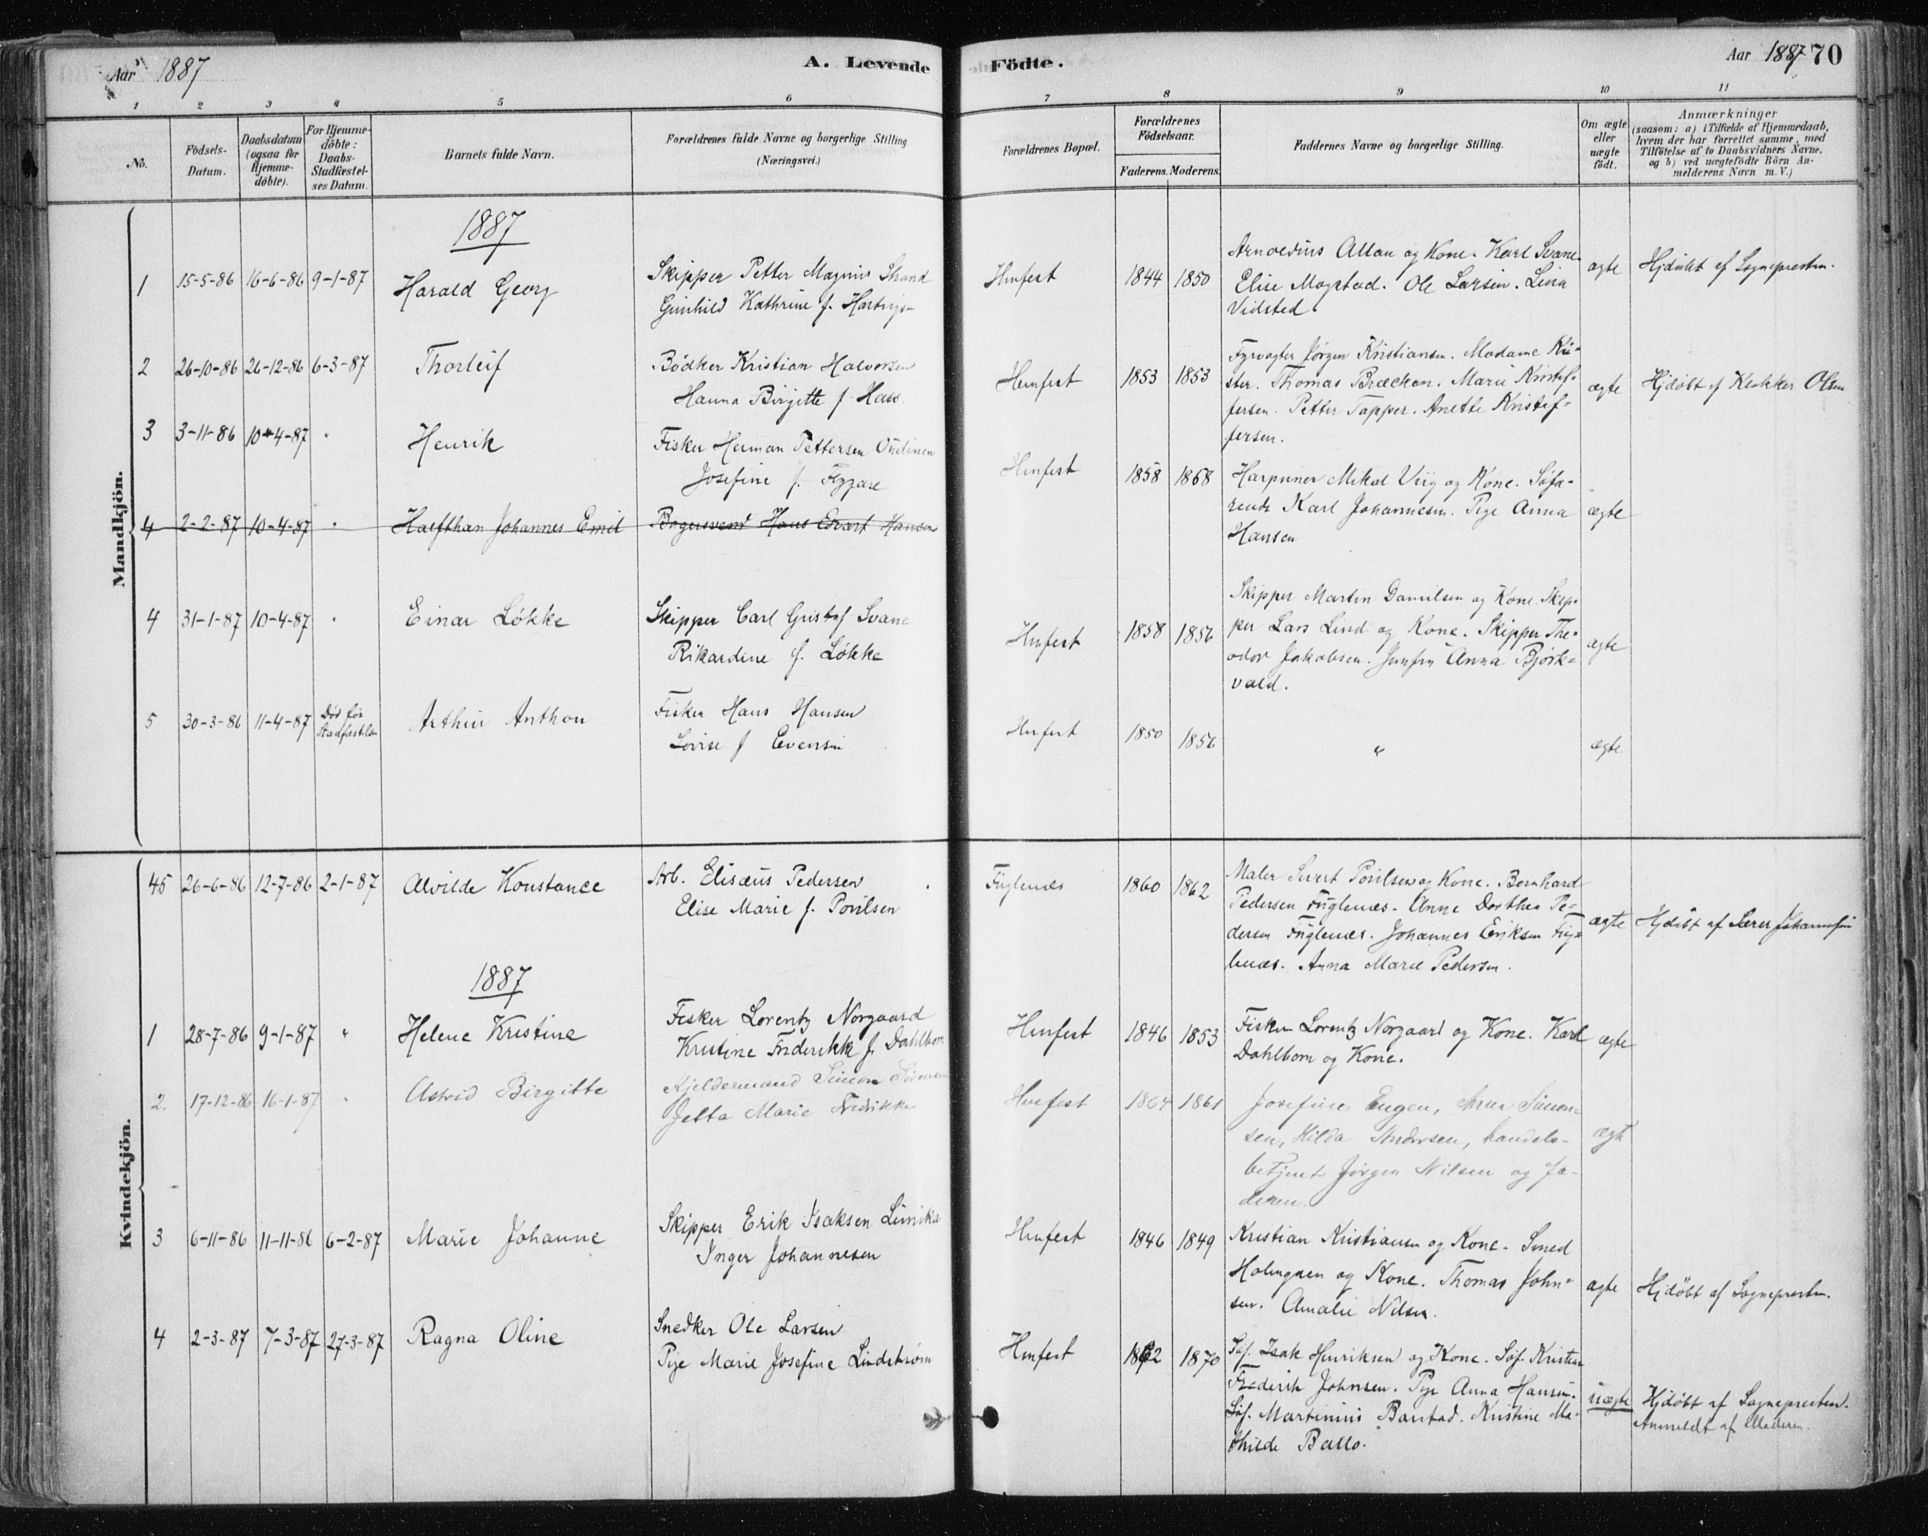 Aar 1887
A. Levende Födte.
Aar 1887 70
1 2 3 4 5 6 7 8 9 10 11
No.
Födsels-
Datum.
Daabsdatum
(ogsaa for
Hjemme-
döbte).
For Hjemme-
döbte:
Daabs-
Stadfæstel-
ses Datum.
Barnets fulde Navn.
Forældrenes fulde Navne og borgerlige Stilling
(Næringsvei.)
Forældrenes Bopæl.
Forældrenes
Födselsaar.
Faderens. Moderens.
Faddernes Navne og borgerlige Stilling.
Om ægte
eller
uægte
födt.
Anmærkninger
(saasom: a) i Tilfælde af Hjemmedaab,
hvem der har forrettet samme, med
Tilföielse af to Daabsvidners Navne,
og b) ved uægtefödte Börn An-
melderens Navn m. V.)
Mandkjön.
1887
1 15-5-86 16-6-86 9-1-87 Harald Georg
Skipper Petter Magnus Strand
Gunhild Kathrine f.
1844 1850
Arnoldus Allan og Kone. Karl Svane
Elise Mogstad. Ole Larsen. Lina
Vidsted
ægte
Hjdöbt af Sognepresten.
2 26-10-86 26-12-86 6-3-87 Thorleif
Bödker Kristian Halvorsen
Hanna Birgitte f. Hass
1853 1853
Fyrvogter Jörgen Kristiansen. Madame Kri-
ster. Thomas Bræckan. Marie Kristof-
fersen. Petter Tapper. Anette Kristof-
fersen.
ægte
Hjdöbt af Klokker Olsen
3 3-11-86 10-4-87 " Henrik
Fisker Herman Pettersen
Josefine f.
1858 1868
Harpuner Mikal Viig og Kone. Söfa-
rende Karl Johannesen. Pige Anna
Hansen
ægte
4 2-2-87 10-4-87 " Halfthan Johannes Emil
Hans Edvart Hansen
4 31-1-87 10-4-87 " Einar Lökke
Skipper Carl Gustaf Svane
Rikardine f. Lökke
1858 1856
Skipper Martin Danielsen og Kone. Skip-
per Lars Lind og Kone. Skipper The-
odor Jakobsen. Jomfru Anna Björk-
vald.
ægte
5 30-3-86 11-4-87 Död för
Arthur Anthon
Fisker Hans Hansen
Lovise f Evensen
1850 1856
"
ægte
Kvindekjön.
45 26-6-86 12-7-86 2-1-87 Alvilde Konstance
Arb. Elisæus Pedersen
Elise Marie f. Povlsen
Fuglenæs
1860 1862
Maler Sivert Povlsen og Kone. Bernhard
Pedersen Fuglenæs. Anne Dorthea Pe-
dersen Fuglenæs. Johannes Eriksen Fug-
lenæs. Anna Marie Pedersen.
ægte
Hjdöbt af
1887
1 28-7-86 9-1-87 " Helene Kristine
Fisker Lorentz Norgaard
Kristine Frederikke f. Dahlbom
1846 1853
Fisker Lorentz Norgaard og Kone. Karl
Dahlbom og Kone.
ægte
2. 17-12-86 16-1-87 " Astrid Birgitte
Kjeldermand Simon Sörensen
Jetta Marie Fredrikke
1864 1861
Josefine Eugen, Anna Simon-
sen, Hilda Andersen, handels-
betjent Jörgen Nilsen og Fa-
deren.
ægte
3 6-11-86 11-11-86 6-2-87 Marie Johanne
Skipper Erik Isaksen
Inger Johannesen
1846 1849
Kristian Kristiansen og Kone. Smed
Holmgren og Kone. Thomas John-
sen. Amalie Nilsen.
ægte
Hjdöbt af Sognepresten.
4 2-3-87 7-3-87 27-3-87 Ragna Oline
Snedker Ole Larsen
Pige Marie Josefine Lindström
1862 1870
Söf. Isak Henriksen og Kone. Söf. Kristian
Frederik Johnsen. Pige Anna Hansen.
Söf. Martinius Barstad. Kristine Ma-
thilde Ballo.
uægte
Hjdöbt af Sognepresten.
Anmeldt af Moderen.